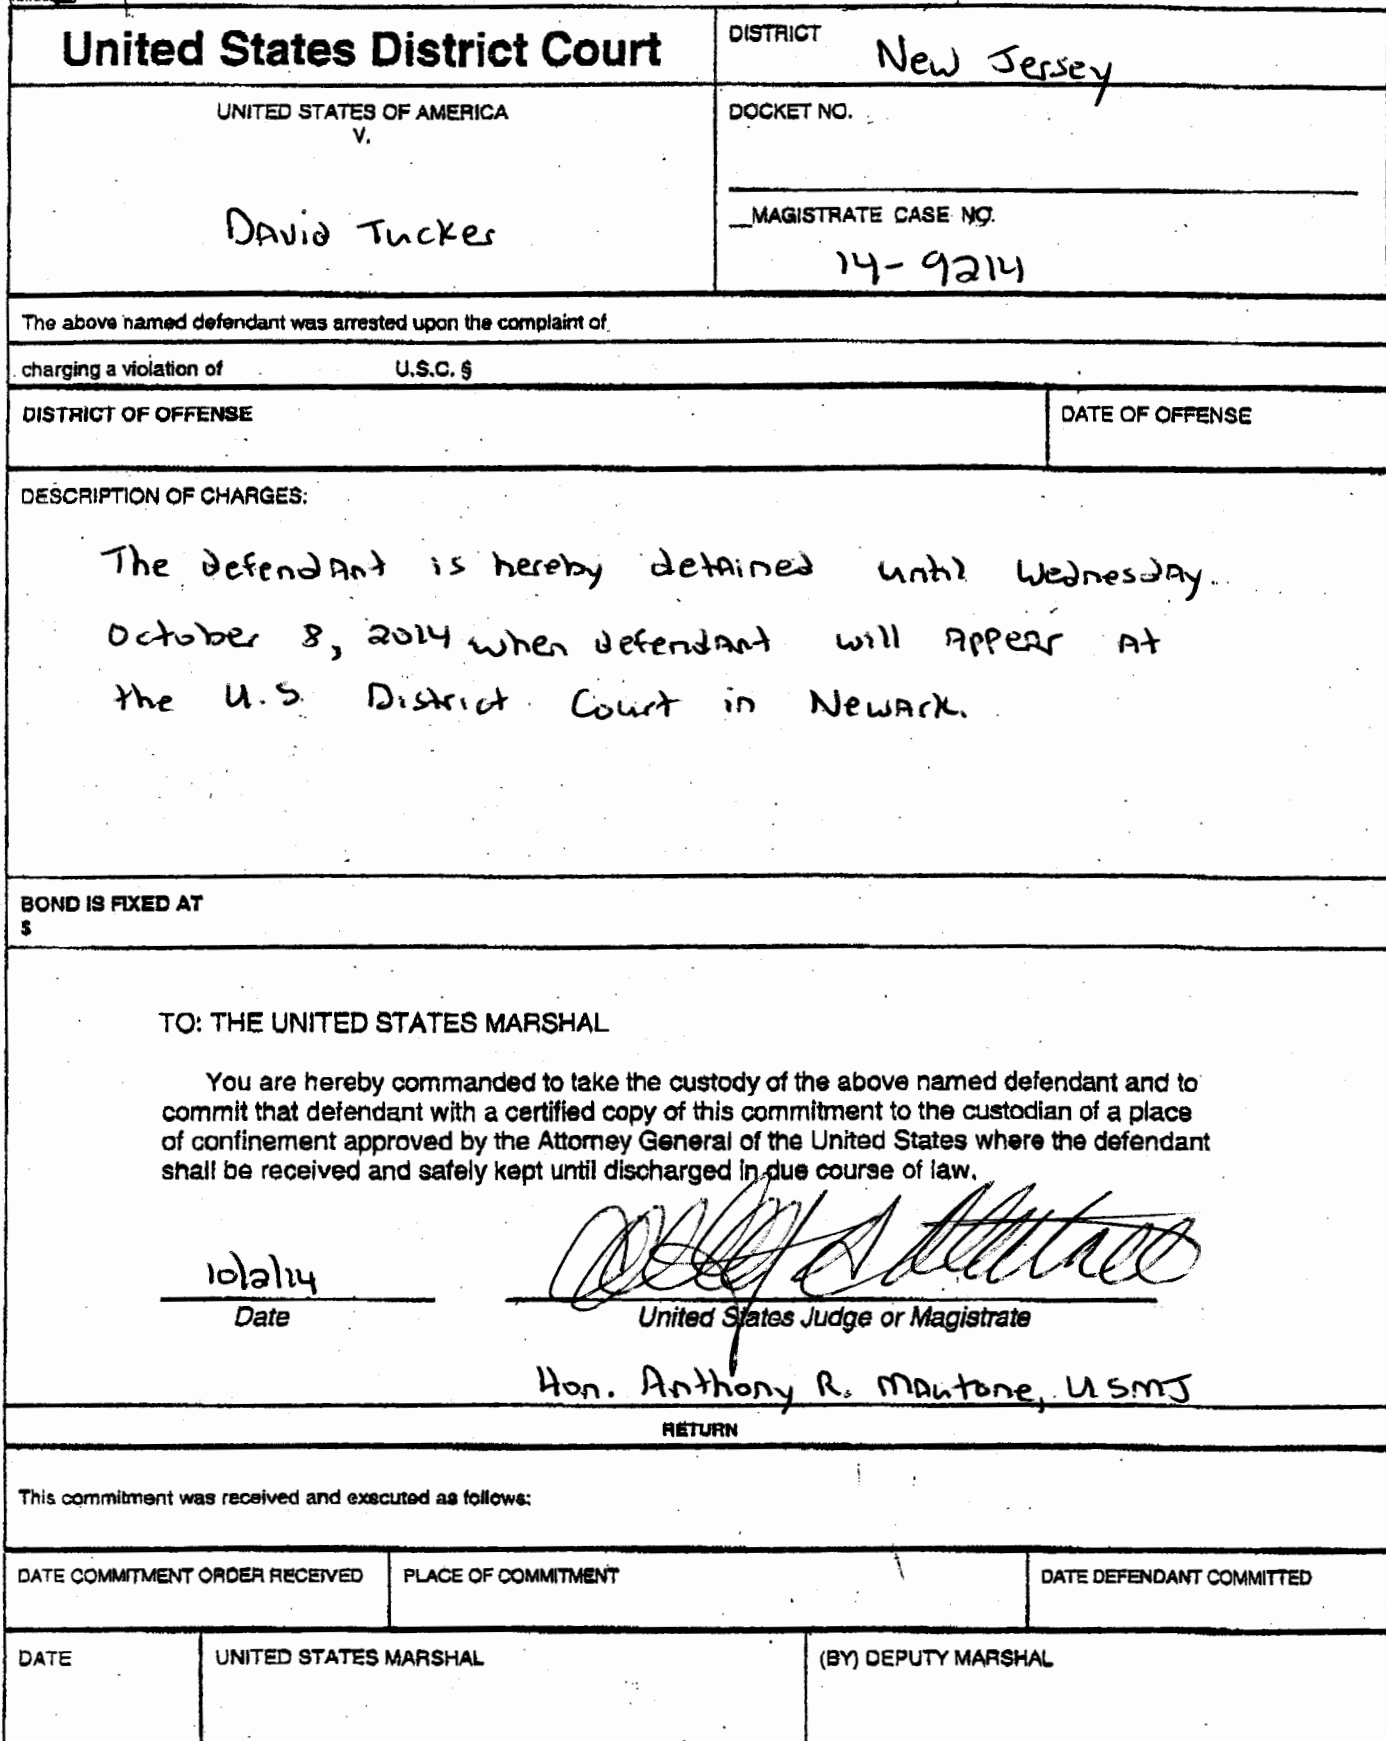 United States District Court
DISTRICT
New Jersey
UNITED STATES OF AMERICA
V.
David Tucker
DOCKET NO.
MAGISTRATE CASE NO.
14-9214
The above named defendant was arrested upon the complaint of
charging a violation of U.S.C. §
DISTRICT OF OFFENSE
DATE OF OFFENSE
DESCRIPTION OF CHARGES:
The defendant is hereby detained until Wednesday
October 8, 2014 when defendant will appear at
the U.S. District Court in Newark.
BOND IS FIXED AT
$
TO: THE UNITED STATES MARSHAL
You are hereby commanded to take the custody of the above named defendant and to
commit that defendant with a certified copy of this commitment to the custodian of a place
of confinement approved by the Attorney General of the United States where the defendant
shall be received and safely kept until discharged in due course of law.
10/2/14
Date
United States Judge or Magistrate
Hon. Anthony R. Mautone, USMJ
RETURN
This commitment was received and executed as follows:
DATE COMMITMENT ORDER RECEIVED
PLACE OF COMMITMENT
DATE DEFENDANT COMMITTED
DATE
UNITED STATES MARSHAL
(BY) DEPUTY MARSHAL